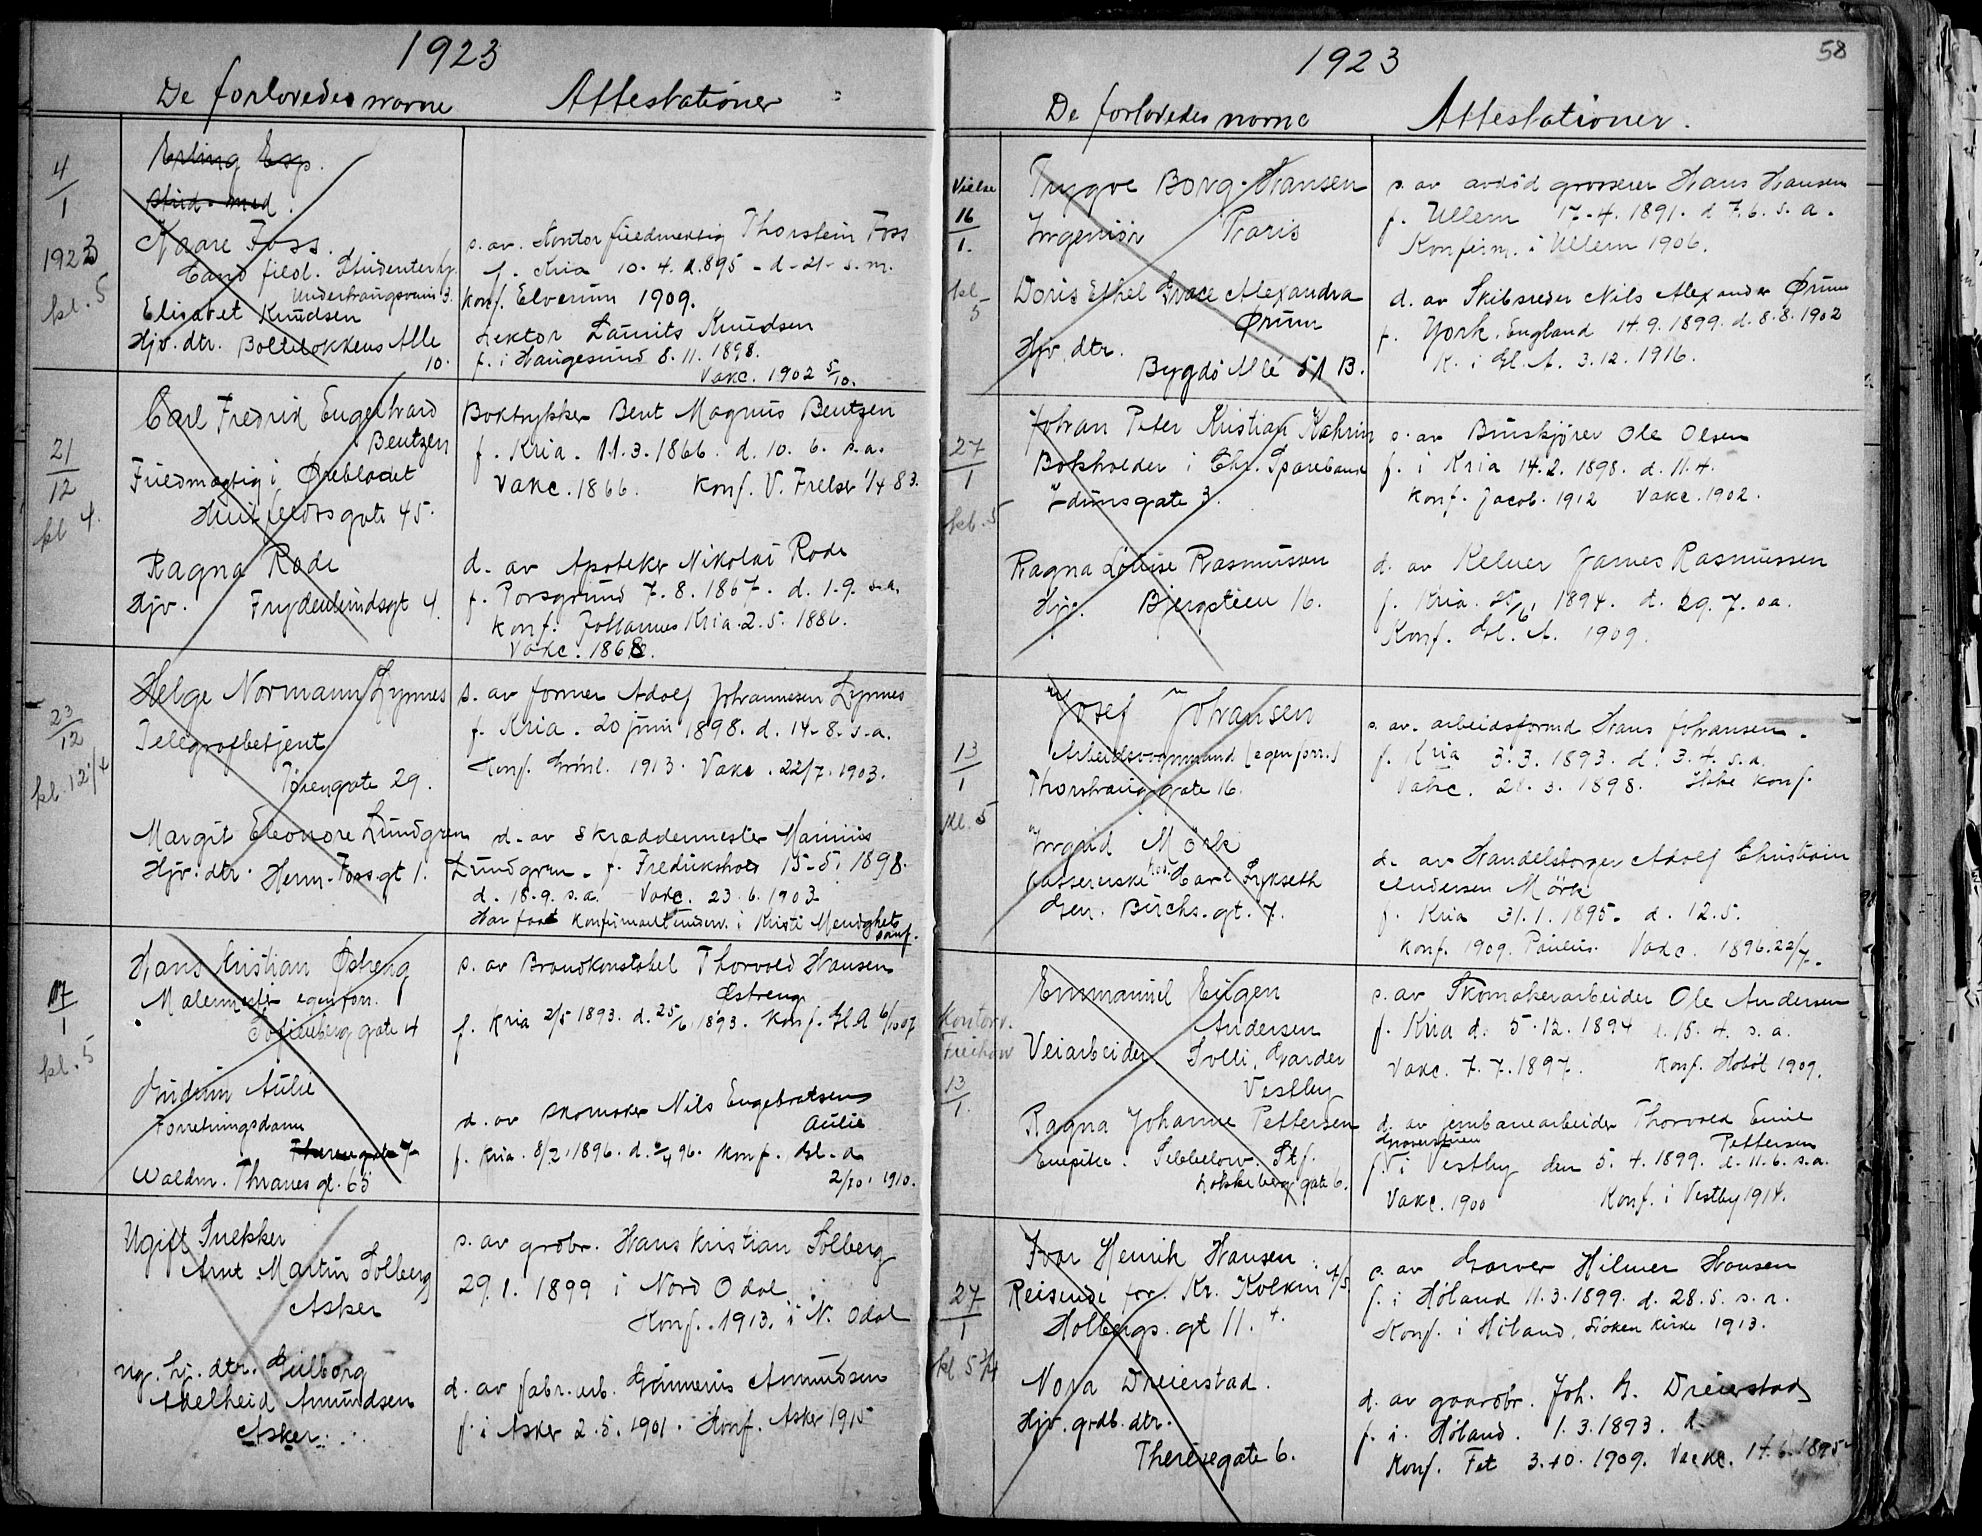 1923
De forlovedes navne Attestationer
4/1
1923
kl. 5
Erling Esp.
stud. med.
Kaare Foss.
Cand filol. Studenterhj.
Underhaugsvein 3.
Elisabet Knudsen
Hjv. dtr. Bolteløkkens Alle
10.
s. av. Kontorfuldmektig Thorstein Foss
f. Kria 10-4. 1895 - d-21- s.m.
konf. Elverum 1909.
Lektor Laurits Knudsen
f. i Haugesund 8.11.1898.
Vakc. 1902 5/10.
21/12
kl 4.
Carl Fredrik Engelhard
Bentzen
Fuldmægtig i Ørebladet
Huitfeldtsgate 45.
Ragna Rode
Hjv. Frydenlundsgt 4.
Boktrykker Bent Magnus Bentzen
f. Kria. 11.3.1866. d. 10. 6. s.a.
Vakc. 1866. Konf. V. Frelser 1/4 83.
d. av Apoteker Nikolai Rode
f. Porsgrund 7.8.1867. d. 1.9. s.a.
konf. Johannes Kria. 2.5. 1886.
Vakc. 1868.
23/12
kl. 12 1/4
Helge Normann Lynnes
Telegrafbetjent
Tøiengate 29.
Margit Eleonore Lundgren
Hjv. dtr. Herm. Fossgt 1.
s. av former Adolf Johannesen Lynnes
f. Kria. 20 juni 1898. d. 14-8. s.a.
Konf. Grønl. 1913. Vakc. 22/7. 1903.
d. av skræddermester Marinius
Lundgren. f. Fredrikshald 15-5. 1898.
d. 18.9. s.a. Vakc. 23.6.1903
Har faat konfirmantunderv. i Kristi Menighets
samf.
17/1
kl. 5
Hans Kristian Østreng
Malermester egen forr.
Sofienberg gate 4
Gudrun Aulie
Forretningsdame
Theresegate 7
Waldm. Thranes gt. 65
s. av Brandkonstabel Thorvald Hansen
Østreng
f. Kria 2/5 1893. d. 25/6 1893. Konf. Gl. A 6/10 07
d. av skomaker Nils Engebretsen
Aulie
f. Kria. 8/2. 1896. d. 6/4 96. Konf. Gl. A
2/10. 1910.
Ugift Snekker
Arnt Martin Solberg
Asker
ug. hj. dtr. Gulborg
Adelheid Amundsen
Asker.
s. av grdbr. Hans Kristian Solberg
29.1. 1899 i Nord Odal
Konf. 1913. i N. Odal
d. av fabr. arb. Gunnerius Amundsen
f. i Asker 2.5. 1901. Konf. Asker 1915
58
1923
De forlovedes navne Attestationer.
Vielse
16/1.
kl
5
Trygve Borg-Hansen
Ingeniør Paris
Doris Ethel Grace Alexandra
Ørum
Hjv. dtr.
Bygdø Allé 51 B.
s. av avdød grosserer Hans Hansen
f. Ullern 17-4. 1891. d 7.6. s.a.
Konfirm. i Ullern 1906.
d. av Skibsreder Nils Alexander Ørum
f. York. England 14.9.1899. d. 8.8.1902
K. i Gl. A. 3.12. 1916.
27/1
kl. 5
Johan Peter Kristian Kahrin
Bokholder i Chr. Sparebank
Idunsgate 3.
Ragna Louise Rasmussen
Hjv. Bjergstien 16.
s. av Buuskjører Ole Olsen
f. i Kria 14.2. 1898. d. 11.4.
Konf. Jacob. 1912 Vakc. 1902.
d. av Kelner James Rasmussen
f. Kria. 1894. d. 29.7. s.a.
Konf. Gl. A. 1909.
13/1
kl. 5
Josef Johansen
Arbeidsvognmand (egen forr.)
Thorshaug gate 16.
Ingrid Mörk
Kassererske hos Carl Lykseth
Gen. Birchs. gt. 7.
s. av. arbeidsformd Hans Johansen.
f. Kria 3.3. 1893. d. 3.4. s.a.
Vakc. 28.3.1898. ikke konf.
d. av Handelsborger Adolf Christian
Andersen Mörk
f. Kria 31.1.1895. d. 12.5.
konf. 1909. Paulus. Vakc. 1896. 22/7.
Kontorv.
Freihow
13/1.
Emmanuel Eugen
Andersen
Veiarbeider Solli, Garder
Vestby
Ragna Johanne Pettersen
Enepike. Sebbelow. St.f.
Lokkeberg gate 6.
s. av Skomakerarbeider Ole Andersen
f. Kria d. 5.12. 1894 d. 15. 4. s. a.
Vakc. 7.7. 1897. Konf. Hobøl 1909.
d. av jernbanearbeider Thorvald Emil
Pettersen
f. i Vestby den 5. 4. 1899. d. 11.6. s.a.
Vakc. 1900 Konf. i Vestby 1914.
27/1
kl 5 3/4
Ivar Henrik Hansen
Reisende for Kr. Kolkin A/S
Holbergs. gt 11. 4.
Nora Dreierstad.
Hjv. grdb. dtr.
Theresegate 6.
s. av Garver Hilmer Hansen
f. i Høland 11.3.1899. d. 28.5. s.a.
Konf. i Høland, Løken kirke 1913.
d. av gaardbr. Joh. A. Dreierstad
f. i. Høland. 1.3.1893. d.
Konf. Fet 3.10. 1909. Vakc. 14.6.1895